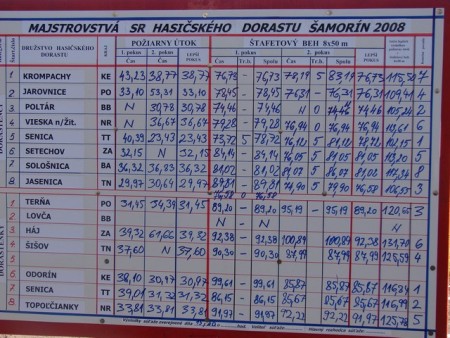 MAJSTROVSTVÁ SR HASIČSKÉHO DORASTU ŠAMORÍN 2008
DRUŽSTVO HASIČSKÉHO DORASTU KRAJ POŽIARNY ÚTOK ŠTAFETOVÝ BEH 8x50 m
1. pokus 2. pokus LEPŠÍ POKUS 1. pokus 2. pokus LEPŠÍ POKUS
Čas Čas Čas Tr.b. Spolu Čas Tr.b. Spolu
1 KROMPACHY KE 43,23 38,77 38,77 76,73 - 76,73 78,19 5 83,19 76,73 115,50 7
2 JAROVNICE PO 33,10 53,31 33,10 78,45 - 78,45 76,31 - 76,31 76,31 109,41 4
3 POLTÁR BB N 30,78 30,78 74,46 - 74,46 N 74,46 105,24 2
4 VIESKA n/Žit. NR N 36,67 36,67 79,28 - 79,28 76,94 76,94 76,94 113,61 6
5 SENICA TT 40,39 23,43 23,43 73,72 5 78,72 76,12 5 81,12 78,72 102,15 1
6 SETECHOV ZA 32,15 N 32,15 84,14 - 84,14 76,05 5 81,05 81,05 113,20 5
7 SOLOŠNICA BA 36,32 36,83 36,32 81,02 - 81,02 81,07 5 86,07 81,02 117,34 8
8 JASENICA TN 29,97 30,64 29,97 74,90 5 79,90 76,58 106,55 3
1 TERŇA PO 31,45 34,39 31,45 89,20 - 89,20 95,19 - 95,19 89,20 120,65 3
2 LOVČA BB N N
3 HÁJ ZA 39,32 61,66 39,32 92,38 - 92,38 100,89 100,89 92,38 131,70 6
4 ŠIŠOV TN 37,60 N 37,60 90,30 - 90,30 87,99 87,99 87,99 125,59 4
6 ODORÍN KE 38,10 30,97 30,97 99,61 - 99,61 85,87 - 85,87 85,87 116,84 1
7 SENICA TT 39,01 31,32 31,32 86,15 - 86,15 85,67 - 85,67 85,67 116,99 2
8 TOPOĽČIANKY NR 33,81 33,81 33,81 91,97 - 91,97 92,22 92,22 91,97 125,78 5